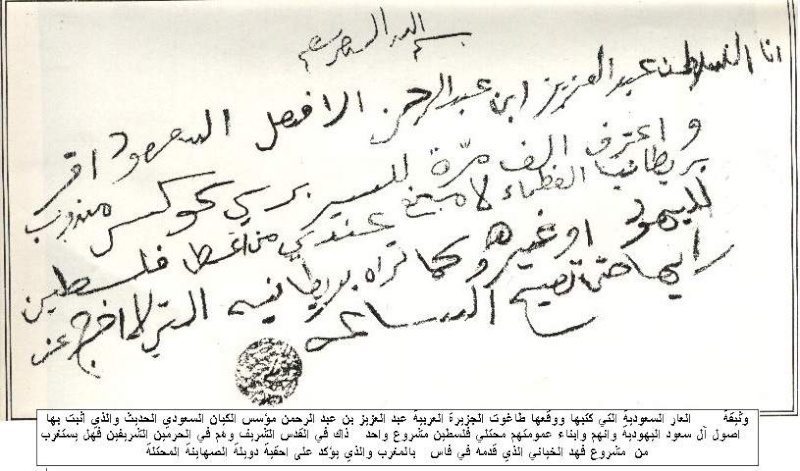 بسم الله الرحمن الرحيم
انا السلطان عبدالعزيز ابن عبدالرحمن الافيصل السعود اقر
واعترف الف مرّة للسير برسي كوكس مندوب
بريطانيا العظماء لا مانع عندي من اعطا فلسطين
لليهود او غيرهم وكما تراه بريطانيه التي لا اخرج عن
رايها حتى تصيح الساعه
وثيقة العار السعودية التي كتبها ووقعها طاغوت الجزيرة العربية عبد العزيز بن عبد الرحمن مؤسس الكيان السعودي الحديث والذي أثبت بها
اصول آل سعود اليهودية وانهم وابناء عمومتهم محتلي فلسطين مشروع واحد ذاك في القدس الشريف وهم في الحرمين الشريفين فهل يستغرب
من مشروع فهد الخياني الذي قدمه في فاس بالمغرب والذي يؤكد على احقية دويلة الصهاينة المحتلة